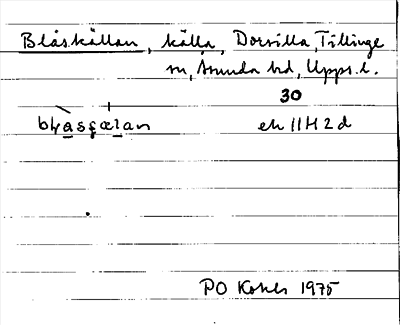 Blåskällan, källa, Dorsilla, Tillinge
sn, Åsunda hd, Upps. l.
30
ek 11H2d
PO Kohls 1975